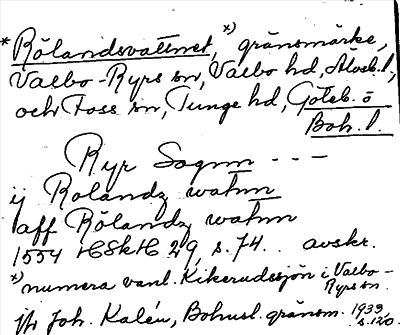 * Rölandsvattnet, *) gränsmärke,
Valbo-Ryrs sn, Valbo hd, Älvsb. l,
och Foss sn, Tunge hd, Göteb. o
Boh. l.
Ryr Sognn - - -
ij Rolandz watnn
aff Rölandz watnn
1554 HSkH 29, s. 74. avskr.
*) numera vanl. Kikerudssjön i Valbo-
Ryrs sn.
jfr Joh. Kalén, Bohusl. gränsm. 1933
s. 120.